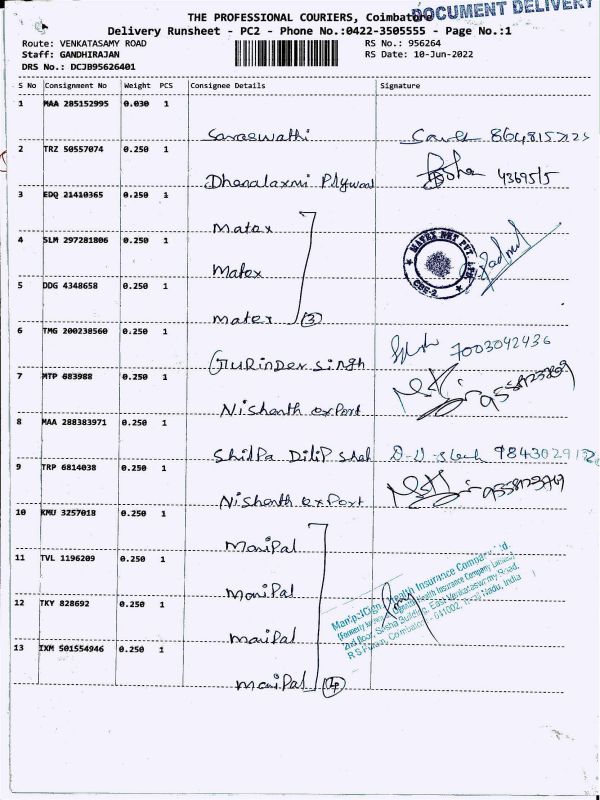 THE PROFESSIONAL COURIERS, Coimbatore
DOCUMENT DELIVERY
Delivery Runsheet - PC2 - Phone No.:0422-3505555 - Page No.:1
Route: VENKATASAMY ROAD RS No.: 956264
Staff: GANDHIRAJAN RS Date: 10-Jun-2022
DRS No.: DCJB95626401
S No Consignment No Weight PCS Consignee Details Signature
1 MAA 285152995 0.030 1
Saraswathi
2 TRZ 50557074 0.250 1
Dhanalaxmi Plywood 4369515
3 EDQ 21410365 0.250 1
Matex
4 SLM 297281806 0.250 1
Matex
MATEX NET PVT. LTD.
CBE-2
5 DDG 4348658 0.250 1
matex 3
6 TMG 200238560 0.250 1
Gurinder Singh 7003042436
7 MTP 683988 0.250 1
Nishanth export
8 MAA 288383971 0.250 1
Shilpa Dilip shah
9 TRP 6814038 0.250 1
Nishanth export
10 KMU 3257018 0.250 1
Manipal
11 TVL 1196209 0.250 1
Manipal
12 TKY 828692 0.250 1
Manipal
13 IXM 501554946 0.250 1
Manipal 4
ManipalCigna Health Insurance Company Ltd.
2nd floor, Susha Building, East Venkataswamy Road,
R S Puram, Coimbatore - 641002, Tamil Nadu, India